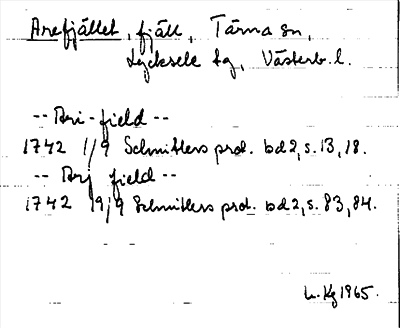 Arefjället, fjäll, Tärna sn,
Lycksele lg, Västerb. l.
-- Ari-field --
1742 1/9 Schnitlers prot. bd 2, s. 13, 18.
-- Arj field --
1742 19/9 Schnitlers prot. bd 2, s. 83, 84.
L. Kg 1965.